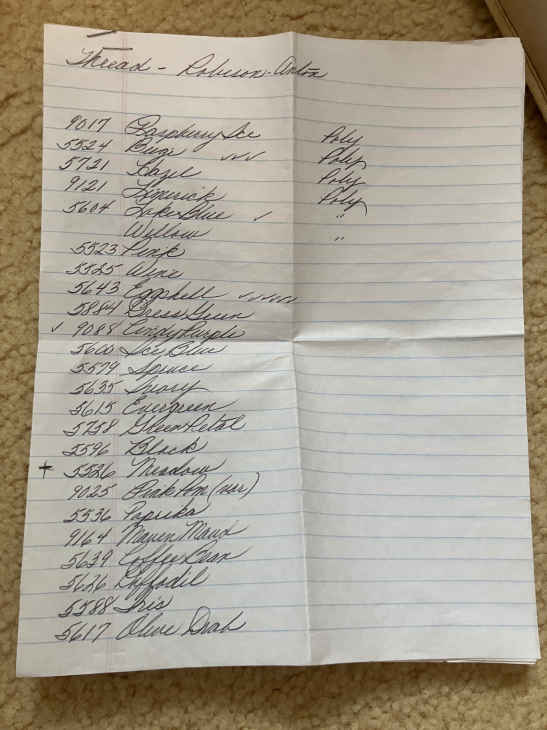 Thread - Robison-Anton
9017 Raspberry Ice Poly
5524 ✓✓✓ Poly
5721 Hazel Poly
9121 Limerick Poly
5604 Lake Blue ✓ "
Willow "
5523 Pink
5525 Wine
5643 Eggshell ✓✓✓✓✓
5884 Dress Green
✓ 9088 Purple
5600 Ice Blue
5579 Spruce
5635 Ivory
5615 Evergreen
5758 Green Petal
5596 Black
+ 5526 Meadow
9025 Pink Pom (var)
5536 Paprika
9164
5639 Coffey Bean
5626 Daffodil
5588 Iris
5617 Olive Drab